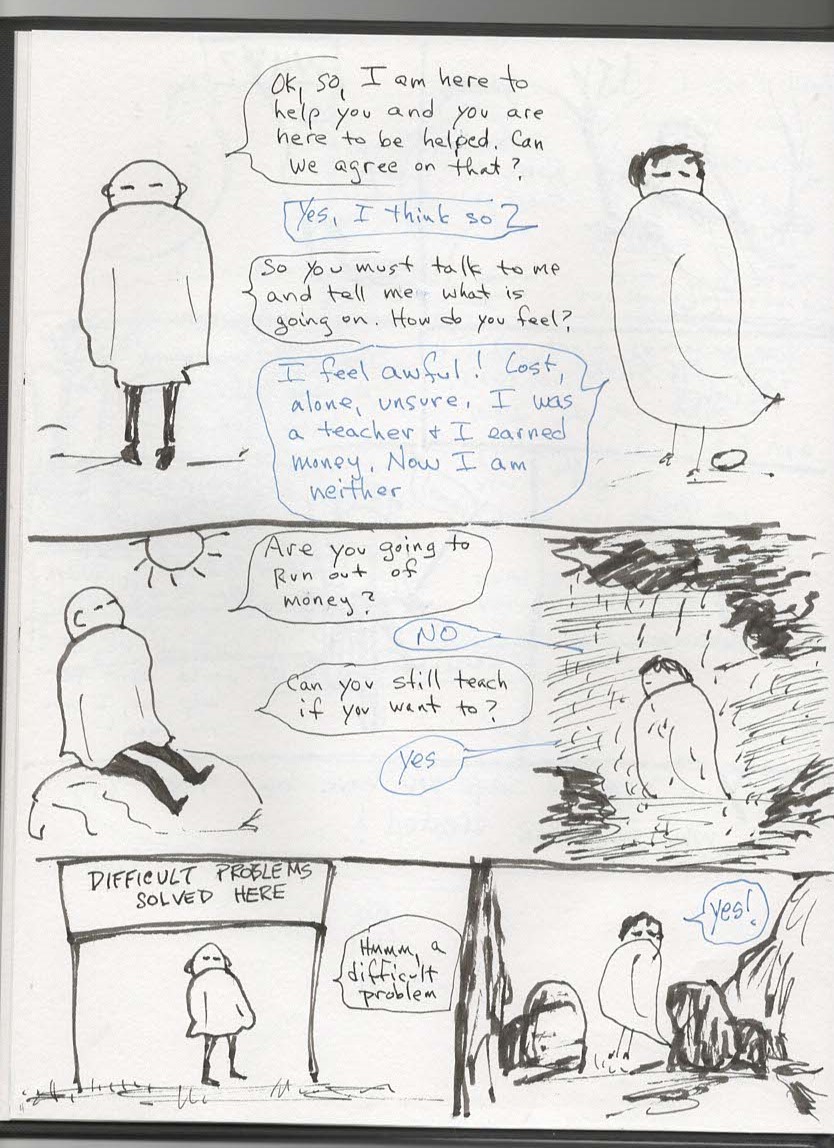 Ok, so, I am here to
help you and you are
here to be helped. Can
we agree on that?
Yes, I think so?
So you must talk to me
and tell me what is
going on. How do you feel?
I feel awful! Lost,
alone, unsure. I was
a teacher & I earned
money. Now I am
neither
Are you going to
Run out of
money?
NO
Can you still teach
if you want to?
yes
DIFFICULT PROBLEMS
SOLVED HERE
Hmmm, a
difficult
problem
yes!